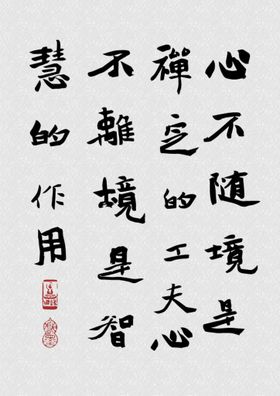 心不随境是
禪定的工夫心
不離境是智
慧的作用